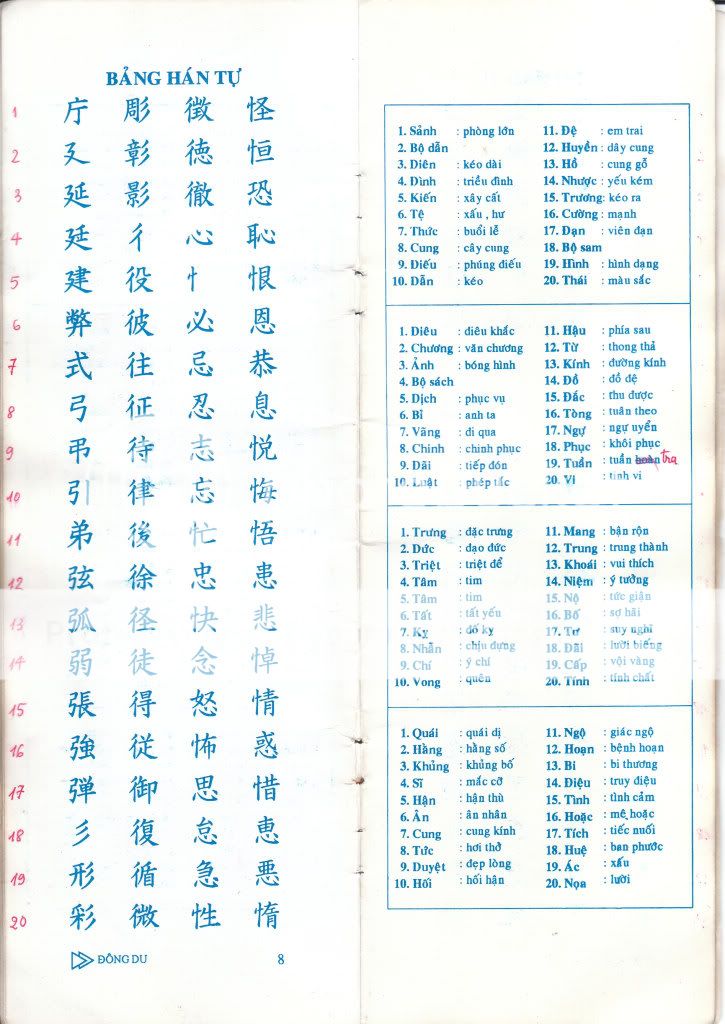 BẢNG HÁN TỰ
1 庁 彫 徴 怪
2 廴 彰 徳 恒
3 延 影 徹 恐
4 廷 彳 心 恥
5 建 役 忄 恨
6 弊 彼 必 恩
7 式 往 忌 恭
8 弓 征 忍 息
9 弔 待 志 悦
10 引 律 忘 悔
11 弟 後 忙 悟
12 弦 徐 忠 患
13 弧 径 快 悲
14 弱 徒 念 悼
15 張 得 怒 情
16 強 従 怖 惑
17 弾 御 思 惜
18 彡 復 怠 恵
19 形 循 急 悪
20 彩 微 性 惰
ĐÔNG DU 8
1. Sảnh : phòng lớn 11. Đệ : em trai
2. Bộ dẫn 12. Huyền : dây cung
3. Diên : kéo dài 13. Hồ : cung gỗ
4. Đình : triều đình 14. Nhược : yếu kém
5. Kiến : xây cất 15. Trương : kéo ra
6. Tệ : xấu , hư 16. Cường : mạnh
7. Thức : buổi lễ 17. Đạn : viên đạn
8. Cung : cây cung 18. Bộ sam
9. Điếu : phúng điếu 19. Hình : hình dạng
10. Dẫn : kéo 20. Thái : màu sắc
1. Điêu : điêu khắc 11. Hậu : phía sau
2. Chương : văn chương 12. Từ : thong thả
3. Ảnh : bóng hình 13. Kính : đường kính
4. Bộ sách 14. Đồ : đồ đệ
5. Dịch : phục vụ 15. Đắc : thu được
6. Bỉ : anh ta 16. Tòng : tuân theo
7. Vãng : đi qua 17. Ngự : ngự uyển
8. Chinh : chinh phục 18. Phục : khôi phục
9. Đãi : tiếp đón 19. Tuần : tuần tra
10. Luật : phép tắc 20. Vi : tinh vi
1. Trưng : đặc trưng 11. Mang : bận rộn
2. Đức : đạo đức 12. Trung : trung thành
3. Triệt : triệt để 13. Khoái : vui thích
4. Tâm : tim 14. Niệm : ý tưởng
5. Tâm : tim 15. Nộ : tức giận
6. Tất : tất yếu 16. Bố : sợ hãi
7. Kỵ : đố kỵ 17. Tư : suy nghĩ
8. Nhẫn : chịu đựng 18. Đãi : lười biếng
9. Chí : ý chí 19. Cấp : vội vàng
10. Vong : quên 20. Tính : tính chất
1. Quái : quái dị 11. Ngộ : giác ngộ
2. Hằng : hằng số 12. Hoạn : bệnh hoạn
3. Khủng : khủng bố 13. Bi : bi thương
4. Sĩ : mắc cỡ 14. Điệu : truy điệu
5. Hận : hận thù 15. Tình : tình cảm
6. Ân : ân nhân 16. Hoặc : mê hoặc
7. Cung : cung kính 17. Tích : tiếc nuối
8. Tức : hơi thở 18. Huệ : ban phước
9. Duyệt : đẹp lòng 19. Ác : xấu
10. Hối : hối hận 20. Nọa : lười